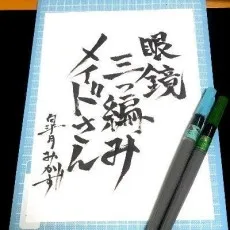 眼鏡
三つ編み
メイドさん
皐月みかず